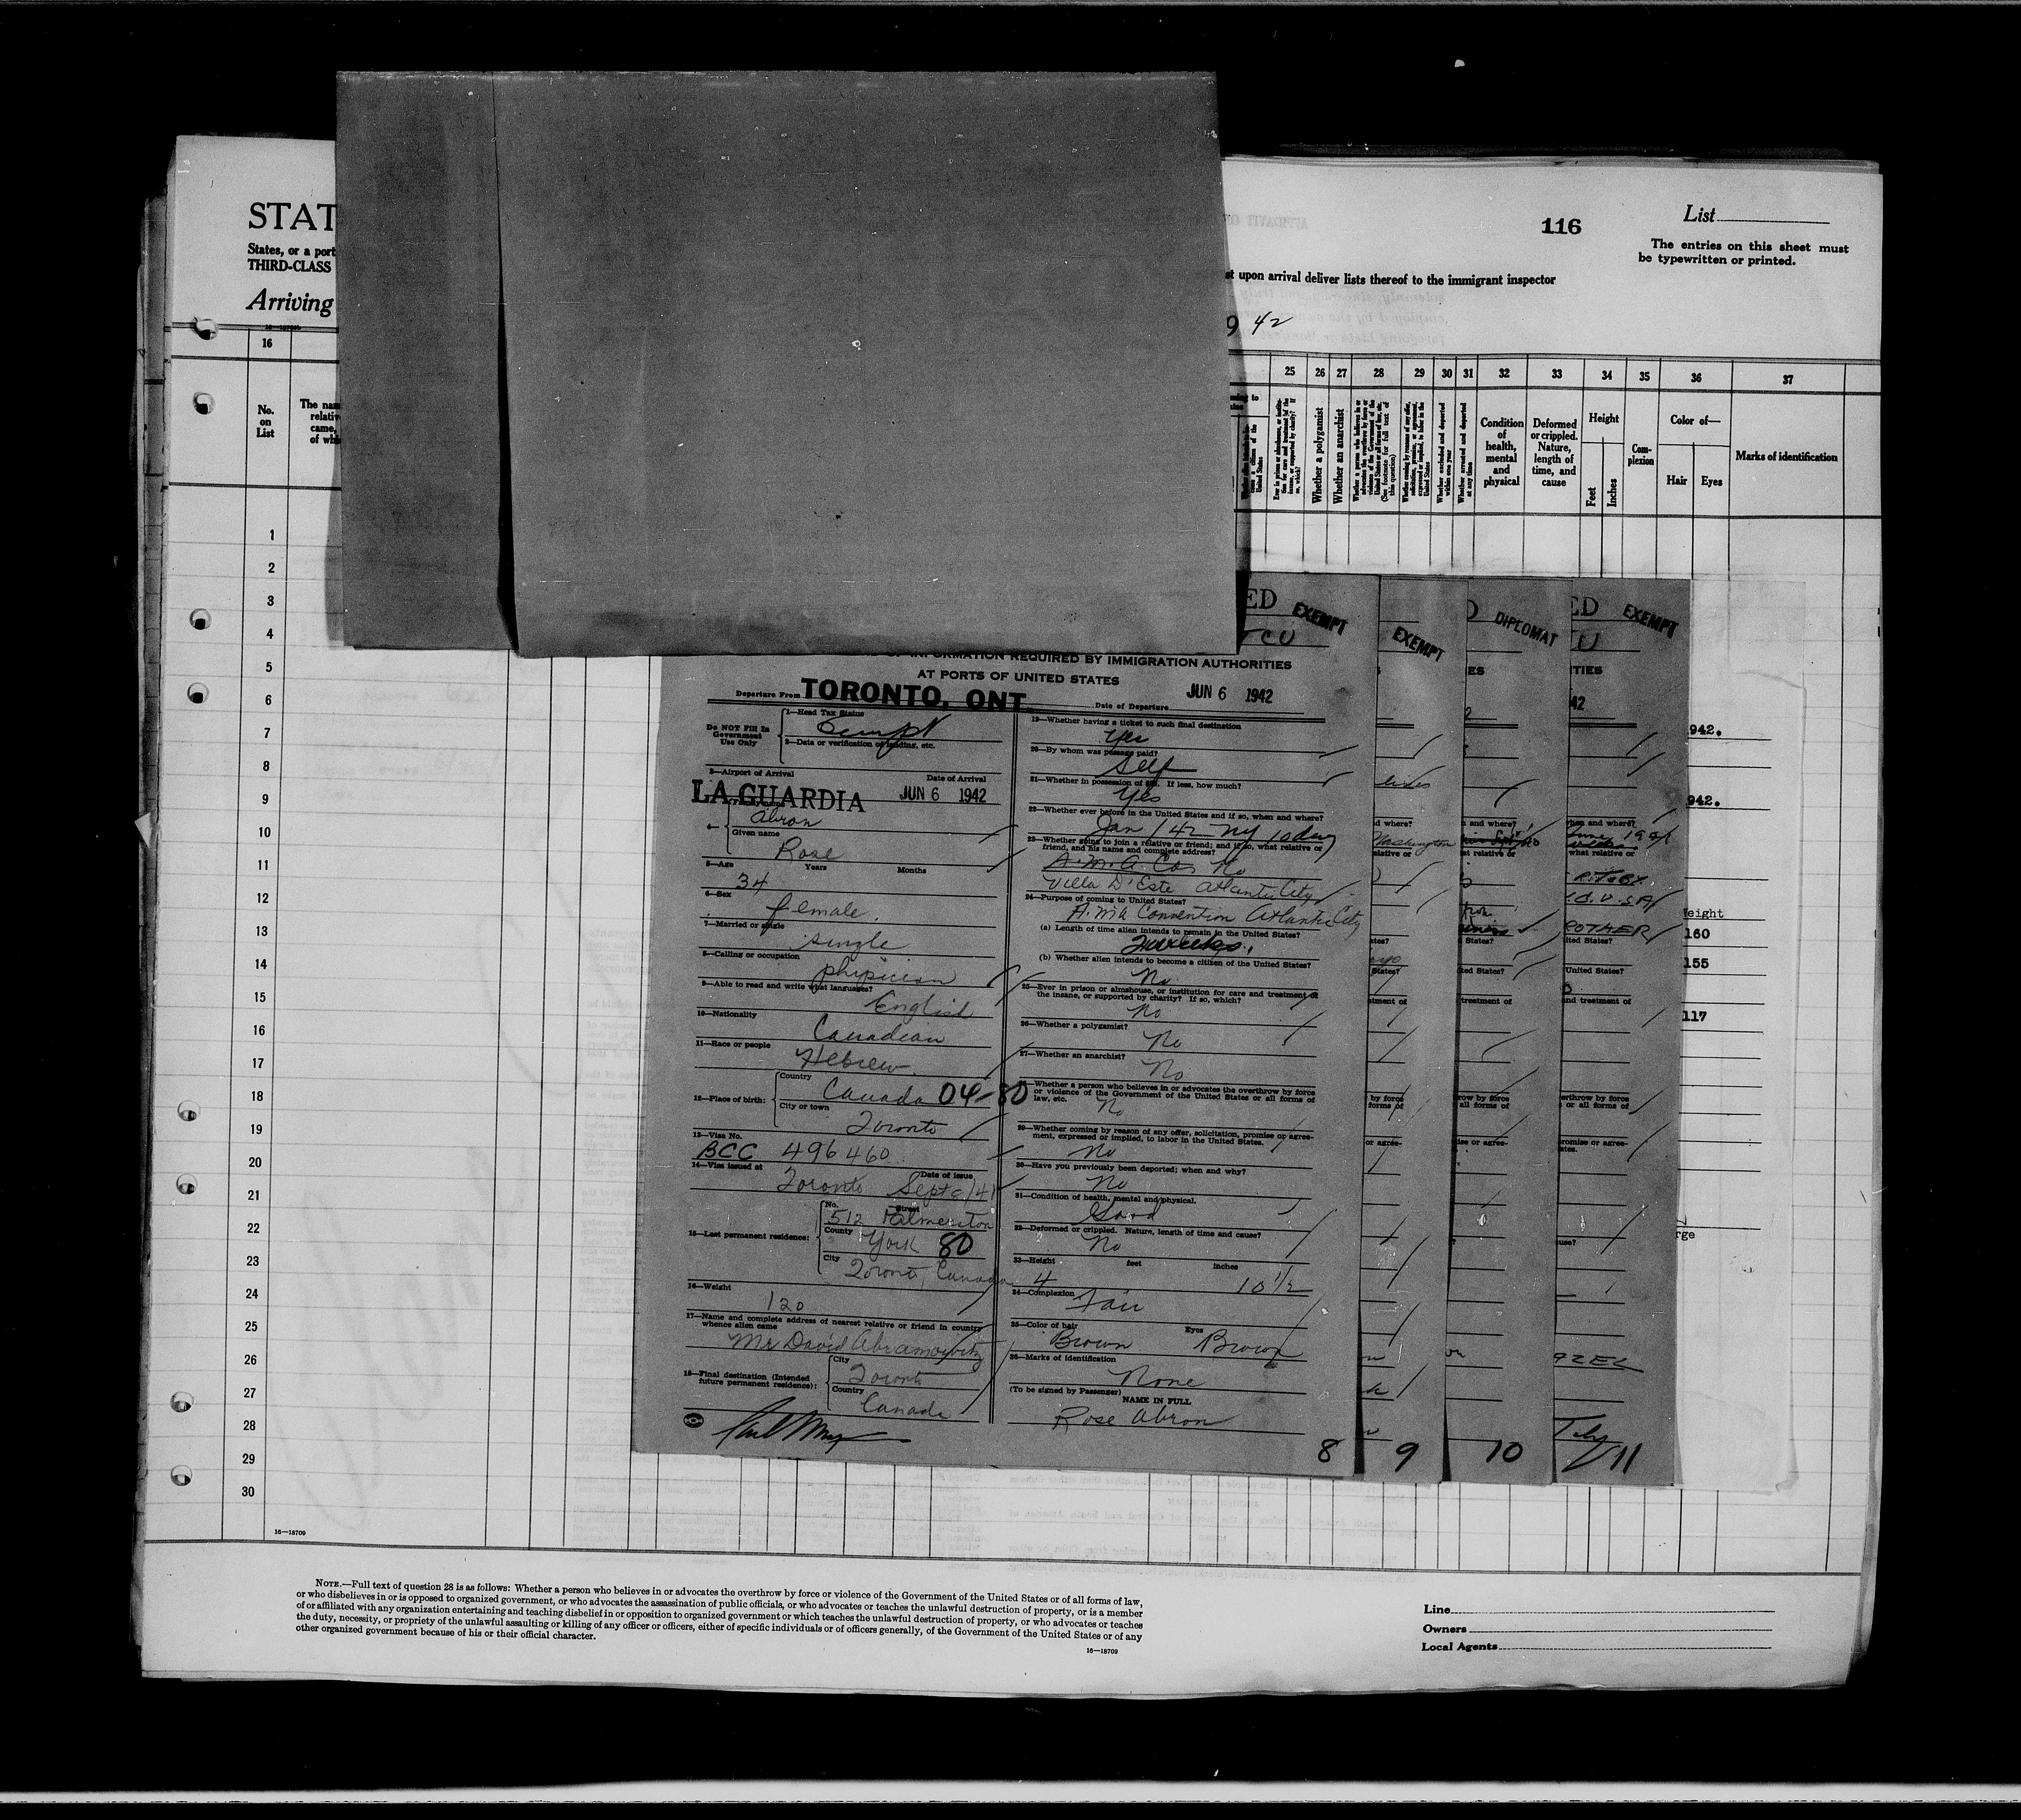 STAT
States, or a port
THIRD-CLASS
Arriving
116
List
The entries on this sheet must
be typewritten or printed.
st upon arrival deliver lists thereof to the immigrant inspector
9 42
16
No.
on
List
The nam
relativ
came,
of wh
25
26
27
28
29
30
31
32
33
34
35
36
37
Whether a polygamist
Whether an anarchist
Whether excluded and deported
within one year
Whether arrested and deported
at any time
Condition
of
health,
mental
and
physical
Deformed
or crippled.
Nature,
length of
time, and
cause
Height
Feet
Inches
Com-
plexion
Color of—
Hair
Eyes
Marks of identification
1
2
3
4
5
6
7
8
9
10
11
12
13
14
15
16
17
18
19
20
21
22
23
24
25
26
27
28
29
30
16—18709
ED EXEMPT
CU
OF INFORMATION REQUIRED BY IMMIGRATION AUTHORITIES
AT PORTS OF UNITED STATES
Departure From TORONTO, ONT. Date of Departure JUN 6 1942
Do NOT Fill In
Government
Use Only
1—Head Tax Status
Exempt
2—Data or verification of landing, etc.
3—Airport of Arrival Date of Arrival
LA GUARDIA JUN 6 1942
4— Family name
Abron
Given name
Rose
5—Age Years Months
34
6—Sex
female.
7—Married or single
single
8—Calling or occupation
physician
9—Able to read and write what languages?
English
10—Nationality
Canadian
11—Race or people
Hebrew.
12—Place of birth: Country
Canada 04-80
City or town
Toronto
13—Visa No.
BCC 496460
14—Visa issued at Date of issue
Toronto Sept 8/41
15—Last permanent residence: No. Street
512 Palmerston
County
York 80
City
Toronto, Canada
16—Weight
120
17—Name and complete address of nearest relative or friend in country
whence alien came
Mr David Abramowitz
18—Final destination (Intended
future permanent residence):
City
Toronto
Country
Canada
19—Whether having a ticket to such final destination
Yes
20—By whom was passage paid?
Self
21—Whether in possession of $50. If less, how much?
Yes
22—Whether ever before in the United States and if so, when and where?
Jan / 42 NY 10 days
23—Whether going to join a relative or friend; and if so, what relative or
friend, and his name and complete address?
A.M.A. Con No
Villa D'Este Atlantic City
24—Purpose of coming to United States?
A.M.A Convention Atlantic City
(a) Length of time alien intends to remain in the United States?
2 weeks.
(b) Whether alien intends to become a citizen of the United States?
No
25—Ever in prison or almshouse, or institution for care and treatment of
the insane, or supported by charity? If so, which?
No
26—Whether a polygamist?
No
27—Whether an anarchist?
No
28—Whether a person who believes in or advocates the overthrow by force
or violence of the Government of the United States or all forms of
law, etc.
No
29—Whether coming by reason of any offer, solicitation, promise or agree-
ment, expressed or implied, to labor in the United States.
No
30—Have you previously been deported; when and why?
No
31—Condition of health, mental and physical.
Good
32—Deformed or crippled. Nature, length of time and cause?
No
33—Height feet inches
4 10 1/2
34—Complexion
Fair
35—Color of hair Eyes
Brown Brown
36—Marks of identification
None
(To be signed by Passenger)
NAME IN FULL
Rose Abron
8
EXEMPT
Washington
9
DIPLOMAT
10
ED EXEMPT
U
TIES
42
11
942.
942.
eight
160
155
117
rge
NOTE.—Full text of question 28 is as follows: Whether a person who believes in or advocates the overthrow by force or violence of the Government of the United States or of all forms of law,
or who disbelieves in or is opposed to organized government, or who advocates the assassination of public officials, or who advocates or teaches the unlawful destruction of property, or is a member
of or affiliated with any organization entertaining and teaching disbelief in or opposition to organized government or which teaches the unlawful destruction of property, or who advocates or teaches
the duty, necessity, or propriety of the unlawful assaulting or killing of any officer or officers, either of specific individuals or of officers generally, of the Government of the United States or of any
other organized government because of his or their official character.
16—18709
Line
Owners
Local Agents